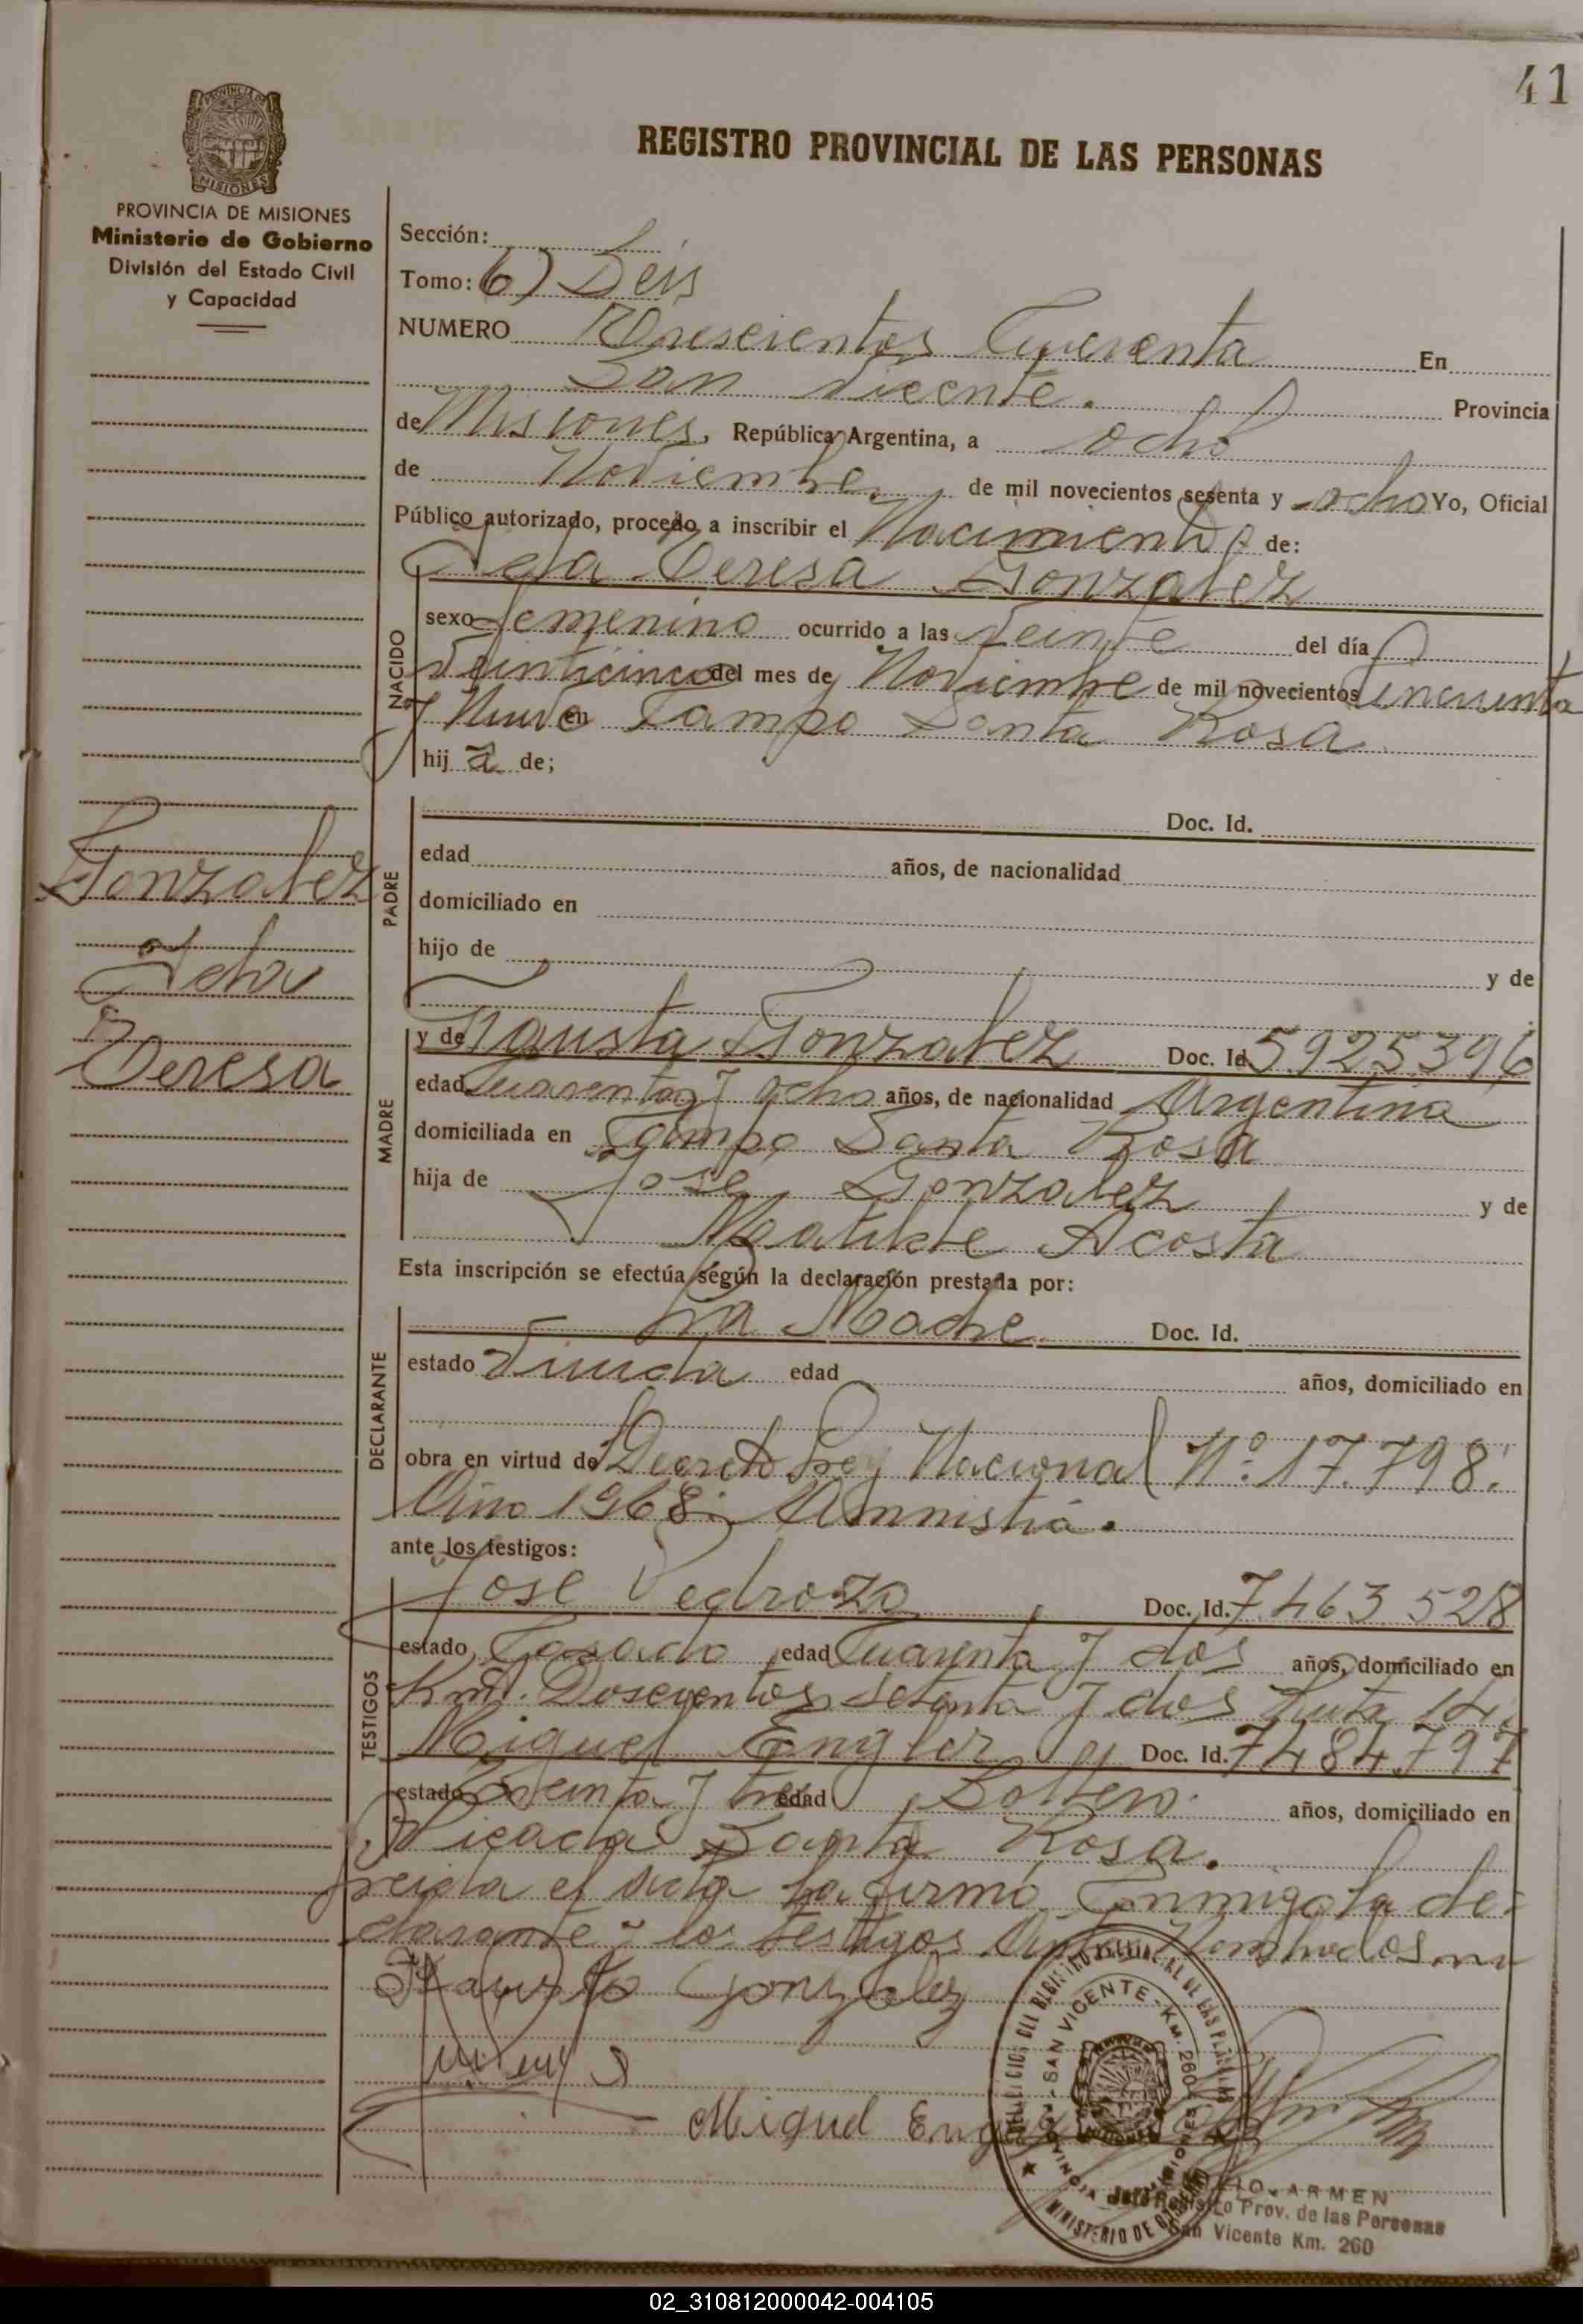 41
REGISTRO PROVINCIAL DE LAS PERSONAS
PROVINCIA DE MISIONES
MISIONES
PROVINCIA DE MISIONES
Ministerio de Gobierno
División del Estado Civil
y Capacidad
Sección:
Tomo: 6) Seis
NUMERO Trescientos Cuarenta En
San Vicente. Provincia
de Misiones, República Argentina, a ocho
de Noviembre, de mil novecientos sesenta y ocho Yo, Oficial
Público autorizado, procedo a inscribir el Nacimiento de:
Teresa Gonzalez
NACIDO
sexo femenino ocurrido a las veinte del día
veinticinco del mes de Noviembre de mil novecientos cincuenta
y Nueve en Campo Santa Rosa
hij a de;
PADRE
Doc. Id.
edad años, de nacionalidad
domiciliado en
hijo de y de
Gonzalez
Teresa
MADRE
y de Fausta Gonzalez Doc. Id 5.925.396
edad Cuarenta y ocho años, de nacionalidad Argentina
domiciliada en Campo Santa Rosa
hija de Jose Gonzalez y de
Matilde Acosta
Esta inscripción se efectúa según la declaración prestada por:
DECLARANTE
La Madre Doc. Id.
estado Viuda edad años, domiciliado en
obra en virtud de Decreto Ley Nacional Nº 17.798.
Año 1968. Amnistia.
ante los testigos:
TESTIGOS
Jose Pedrozo Doc. Id. 7.463.528
estado Casado edad Cuarenta y dos años, domiciliado en
Km. Doscientos setenta y dos Ruta 14.
Miguel Engler Doc. Id. 7.484.797
estado Treinta y tres edad Soltero. años, domiciliado en
Picada Santa Rosa.
Leida el Acta la firmó Conmigo la de-
clarante y los testigos Nombrados
Fausta Gonzalez
Miguel
REGISTRO PROVINCIAL DE LAS PERSONAS
SAN VICENTE - KM. 260
PROVINCIA MISIONES
MINISTERIO DE GOBIERNO
Jefe Registro Prov. de las Personas
San Vicente Km. 260
02_310812000042-004105